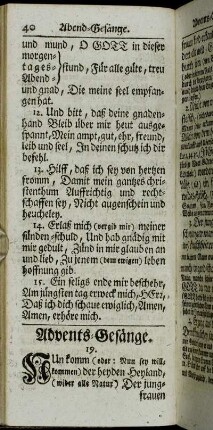 40 Abend-Gesänge.
und mund, O GOTT in dieser
morgen-
tages- stund, Für alle güte, treu
Abend-
und gnad, Die meine seel empfan-
gen hat.
12. Und bitt, daß deine gnaden-
hand Bleib über mir heut ausge-
spannt, Mein ampt, gut, ehr, freund,
leib und seel, In deinen schutz ich dir
befehl.
13. Hilff, daß ich sey von hertzen
fromm, Damit mein gantzes Chri-
stenthum Auffrichtig und recht-
schaffen sey, Nicht augenschein und
heucheley.
14. Erlaß mich (vergib mir) meiner
sünden-schuld, Und hab gnädig mit
mir gedult, Zünd in mir glauben an
und lieb, Zu jenem (dem ewigen) leben
hoffnung gib.
15. Ein seligs ende mir bescher,
Am jüngsten tag erweck mich, HErr,
Daß ich dich schaue ewiglich, Amen,
Amen, erhöre mich.
Advents-Gesänge.
19.
NUn komm (oder: Nun sey will-
kommen) der heyden Heyland,
(wider alle Natur) Der jung-
frauen